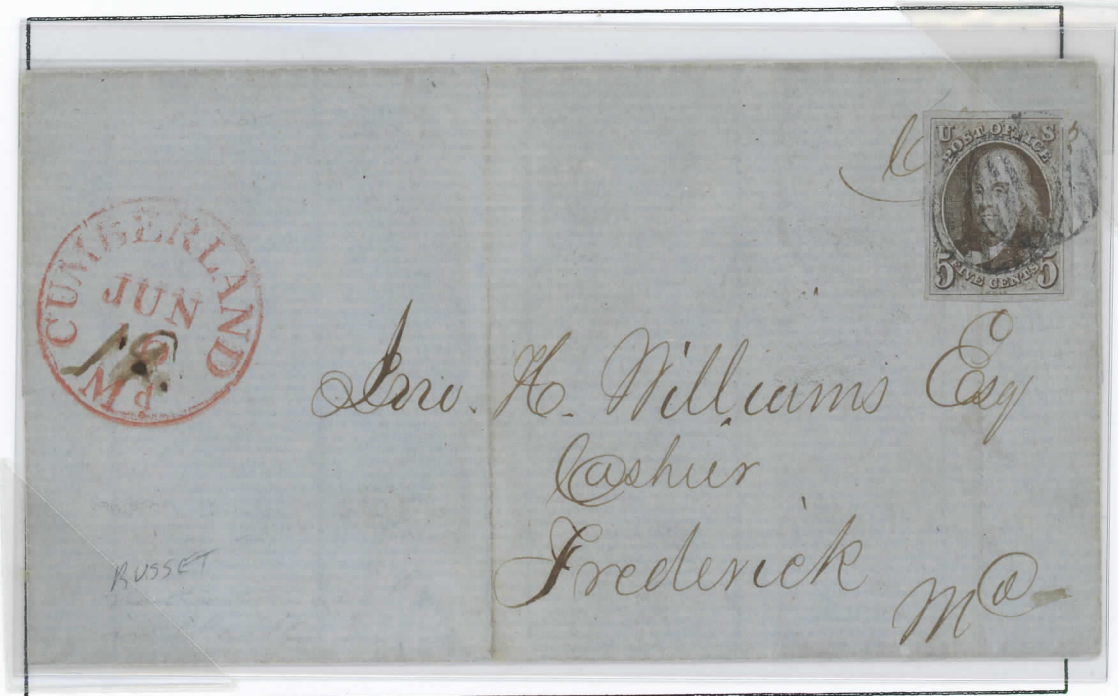 U S
POST OFFICE
5 FIVE CENTS 5
CUMBERLAND
JUN
Md
18
Jno. H. Williams Esq
Cashier
Frederick
Md
RUSSET